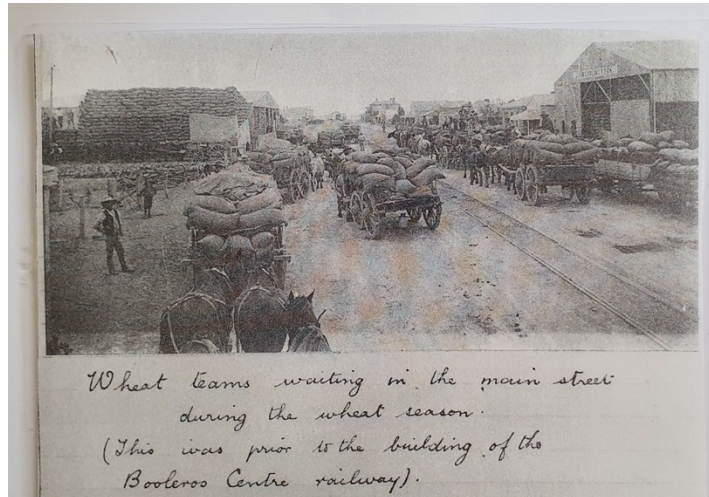 Wheat teams waiting in the main street
during the wheat season.
(This was prior to the building of the
Booleroo Centre railway).